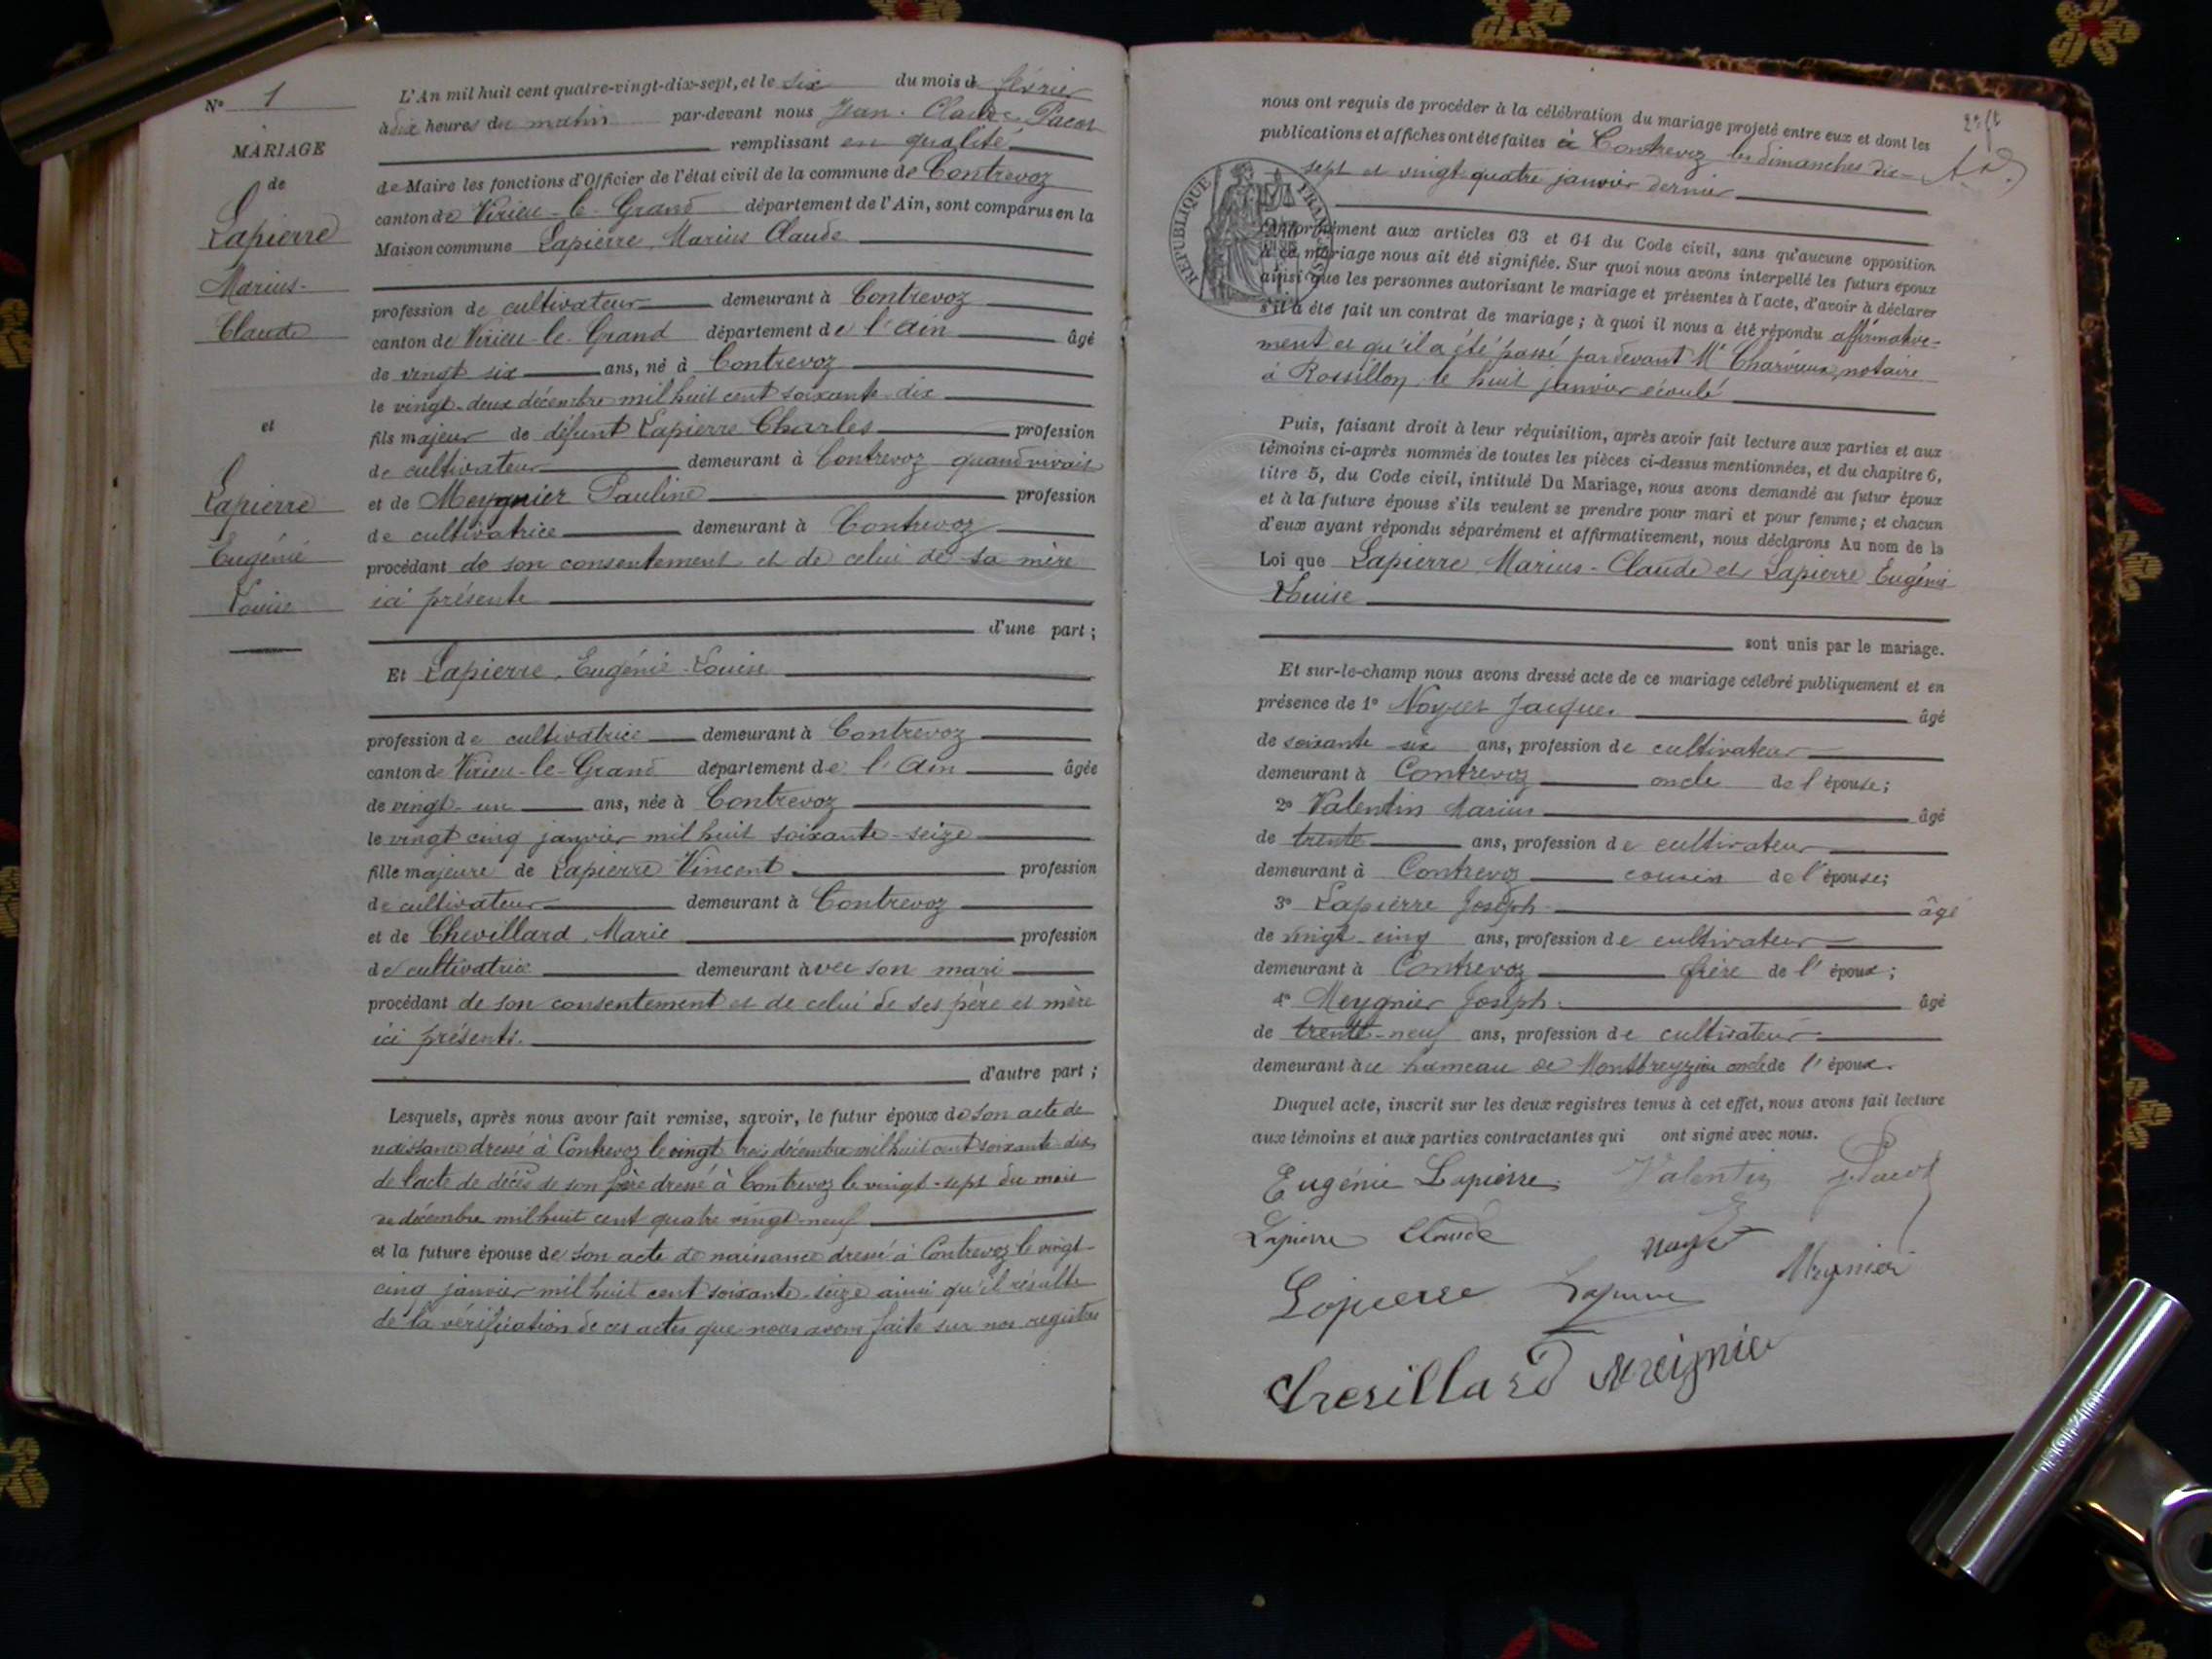 N° 1
MARIAGE
de
Lapierre
Marius-
Claude
et
Lapierre
Eugénie
Louise
L'An mil huit cent quatre-vingt-dix-sept, et le six du mois de février
à dix heures du matin par-devant nous Jean-Claude Pacot
remplissant en qualité
de Maire les fonctions d'Officier de l'état civil de la commune de Contrevoz
canton de Virieu-le-Grand département de l'Ain, sont comparus en la
Maison commune Lapierre, Marius Claude
profession de cultivateur demeurant à Contrevoz
canton de Virieu-le-Grand département de l'Ain âgé
de vingt six ans, né à Contrevoz
le vingt-deux décembre mil huit cent soixante-dix
fils majeur de défunt Lapierre Charles profession
de cultivateur demeurant à Contrevoz quand vivait
et de Meygnier Pauline profession
de cultivatrice demeurant à Contrevoz
procédant de son consentement et de celui de sa mère
ici présente
d'une part;
Et Lapierre, Eugénie-Louise
profession de cultivatrice demeurant à Contrevoz
canton de Virieu-le-Grand département de l'Ain âgée
de vingt-un ans, née à Contrevoz
le vingt cinq janvier mil huit soixante-seize
fille majeure de Lapierre Vincent profession
de cultivateur demeurant à Contrevoz
et de Chevillard, Marie profession
de cultivatrice demeurant avec son mari
procédant de son consentement et de celui de ses père et mère
ici présents.
d'autre part;
Lesquels, après nous avoir fait remise, savoir, le futur époux de son acte de
naissance dressé à Contrevoz le vingt trois décembre mil huit cent soixante-dix
de l'acte de décès de son père dressé à Contrevoz le vingt-sept du mois
de décembre mil huit cent quatre vingt neuf
et la future épouse de son acte de naissance dressé à Contrevoz le vingt-
cinq janvier mil huit cent soixante-seize ainsi qu'il résulte
de la vérification de ces actes que nous avons faite sur nos registres
nous ont requis de procéder à la célébration du mariage projeté entre eux et dont les
publications et affiches ont été faites à Contrevoz les dimanches dix-
sept et vingt quatre janvier dernier
RÉPUBLIQUE FRANÇAISE
conformément aux articles 63 et 64 du Code civil, sans qu'aucune opposition
à ce mariage nous ait été signifiée. Sur quoi nous avons interpellé les futurs époux
ainsi que les personnes autorisant le mariage et présentes à l'acte, d'avoir à déclarer
s'il a été fait un contrat de mariage; à quoi il nous a été répondu affirmative-
ment et qu'il a été passé pardevant Me Charvieux, notaire
à Rossillon le huit janvier écoulé
Puis, faisant droit à leur réquisition, après avoir fait lecture aux parties et aux
témoins ci-après nommés de toutes les pièces ci-dessus mentionnées, et du chapitre 6,
titre 5, du Code civil, intitulé Du Mariage, nous avons demandé au futur époux
et à la future épouse s'ils veulent se prendre pour mari et pour femme; et chacun
d'eux ayant répondu séparément et affirmativement, nous déclarons Au nom de la
Loi que Lapierre, Marius-Claude et Lapierre Eugénie
Louise
sont unis par le mariage.
Et sur-le-champ nous avons dressé acte de ce mariage célébré publiquement et en
présence de 1° Noyret Jacques âgé
de soixante-six ans, profession de cultivateur
demeurant à Contrevoz oncle de l'épouse;
2° Valentin Marius âgé
de trente ans, profession de cultivateur
demeurant à Contrevoz cousin de l'épouse;
3° Lapierre Joseph âgé
de vingt-cinq ans, profession de cultivateur
demeurant à Contrevoz frère de l'époux;
4° Meygnier Joseph âgé
de trente-neuf ans, profession de cultivateur
demeurant au hameau de Montbreyzieu oncle de l'époux.
Duquel acte, inscrit sur les deux registres tenus à cet effet, nous avons fait lecture
aux témoins et aux parties contractantes qui ont signé avec nous.
Eugénie Lapierre Valentin J. Pacot
Lapierre Claude Noyret Meynier
Lapierre Lapierre
Chevillard Meignier